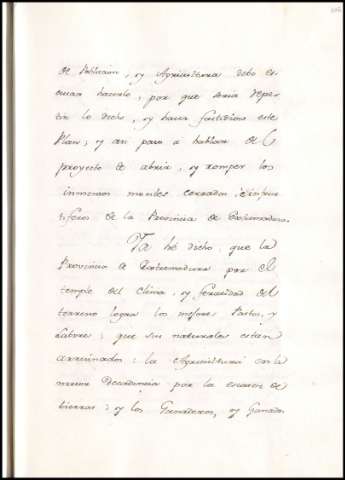 de Poblacion, y Agricultura debo es-
cusar hacerlo, por que seria repe-
tir lo dicho, y hacer fastidioso este
Plan; y asi paso a hablar del
proyecto de abrir, y romper los
inmensos montes cerrados, é infruc-
tiferos de la Provincia de Extremadura.
Ya hé dicho, que la
Provincia de Extremadura por el
temple del Clima, y feracidad del
terreno logra los mejores Pastos, y
Labores; que sus naturales estan
arruinados: la Agricultura con la
mayor Decadencia por la escasez de
tierras: y los Ganaderos, y Ganados